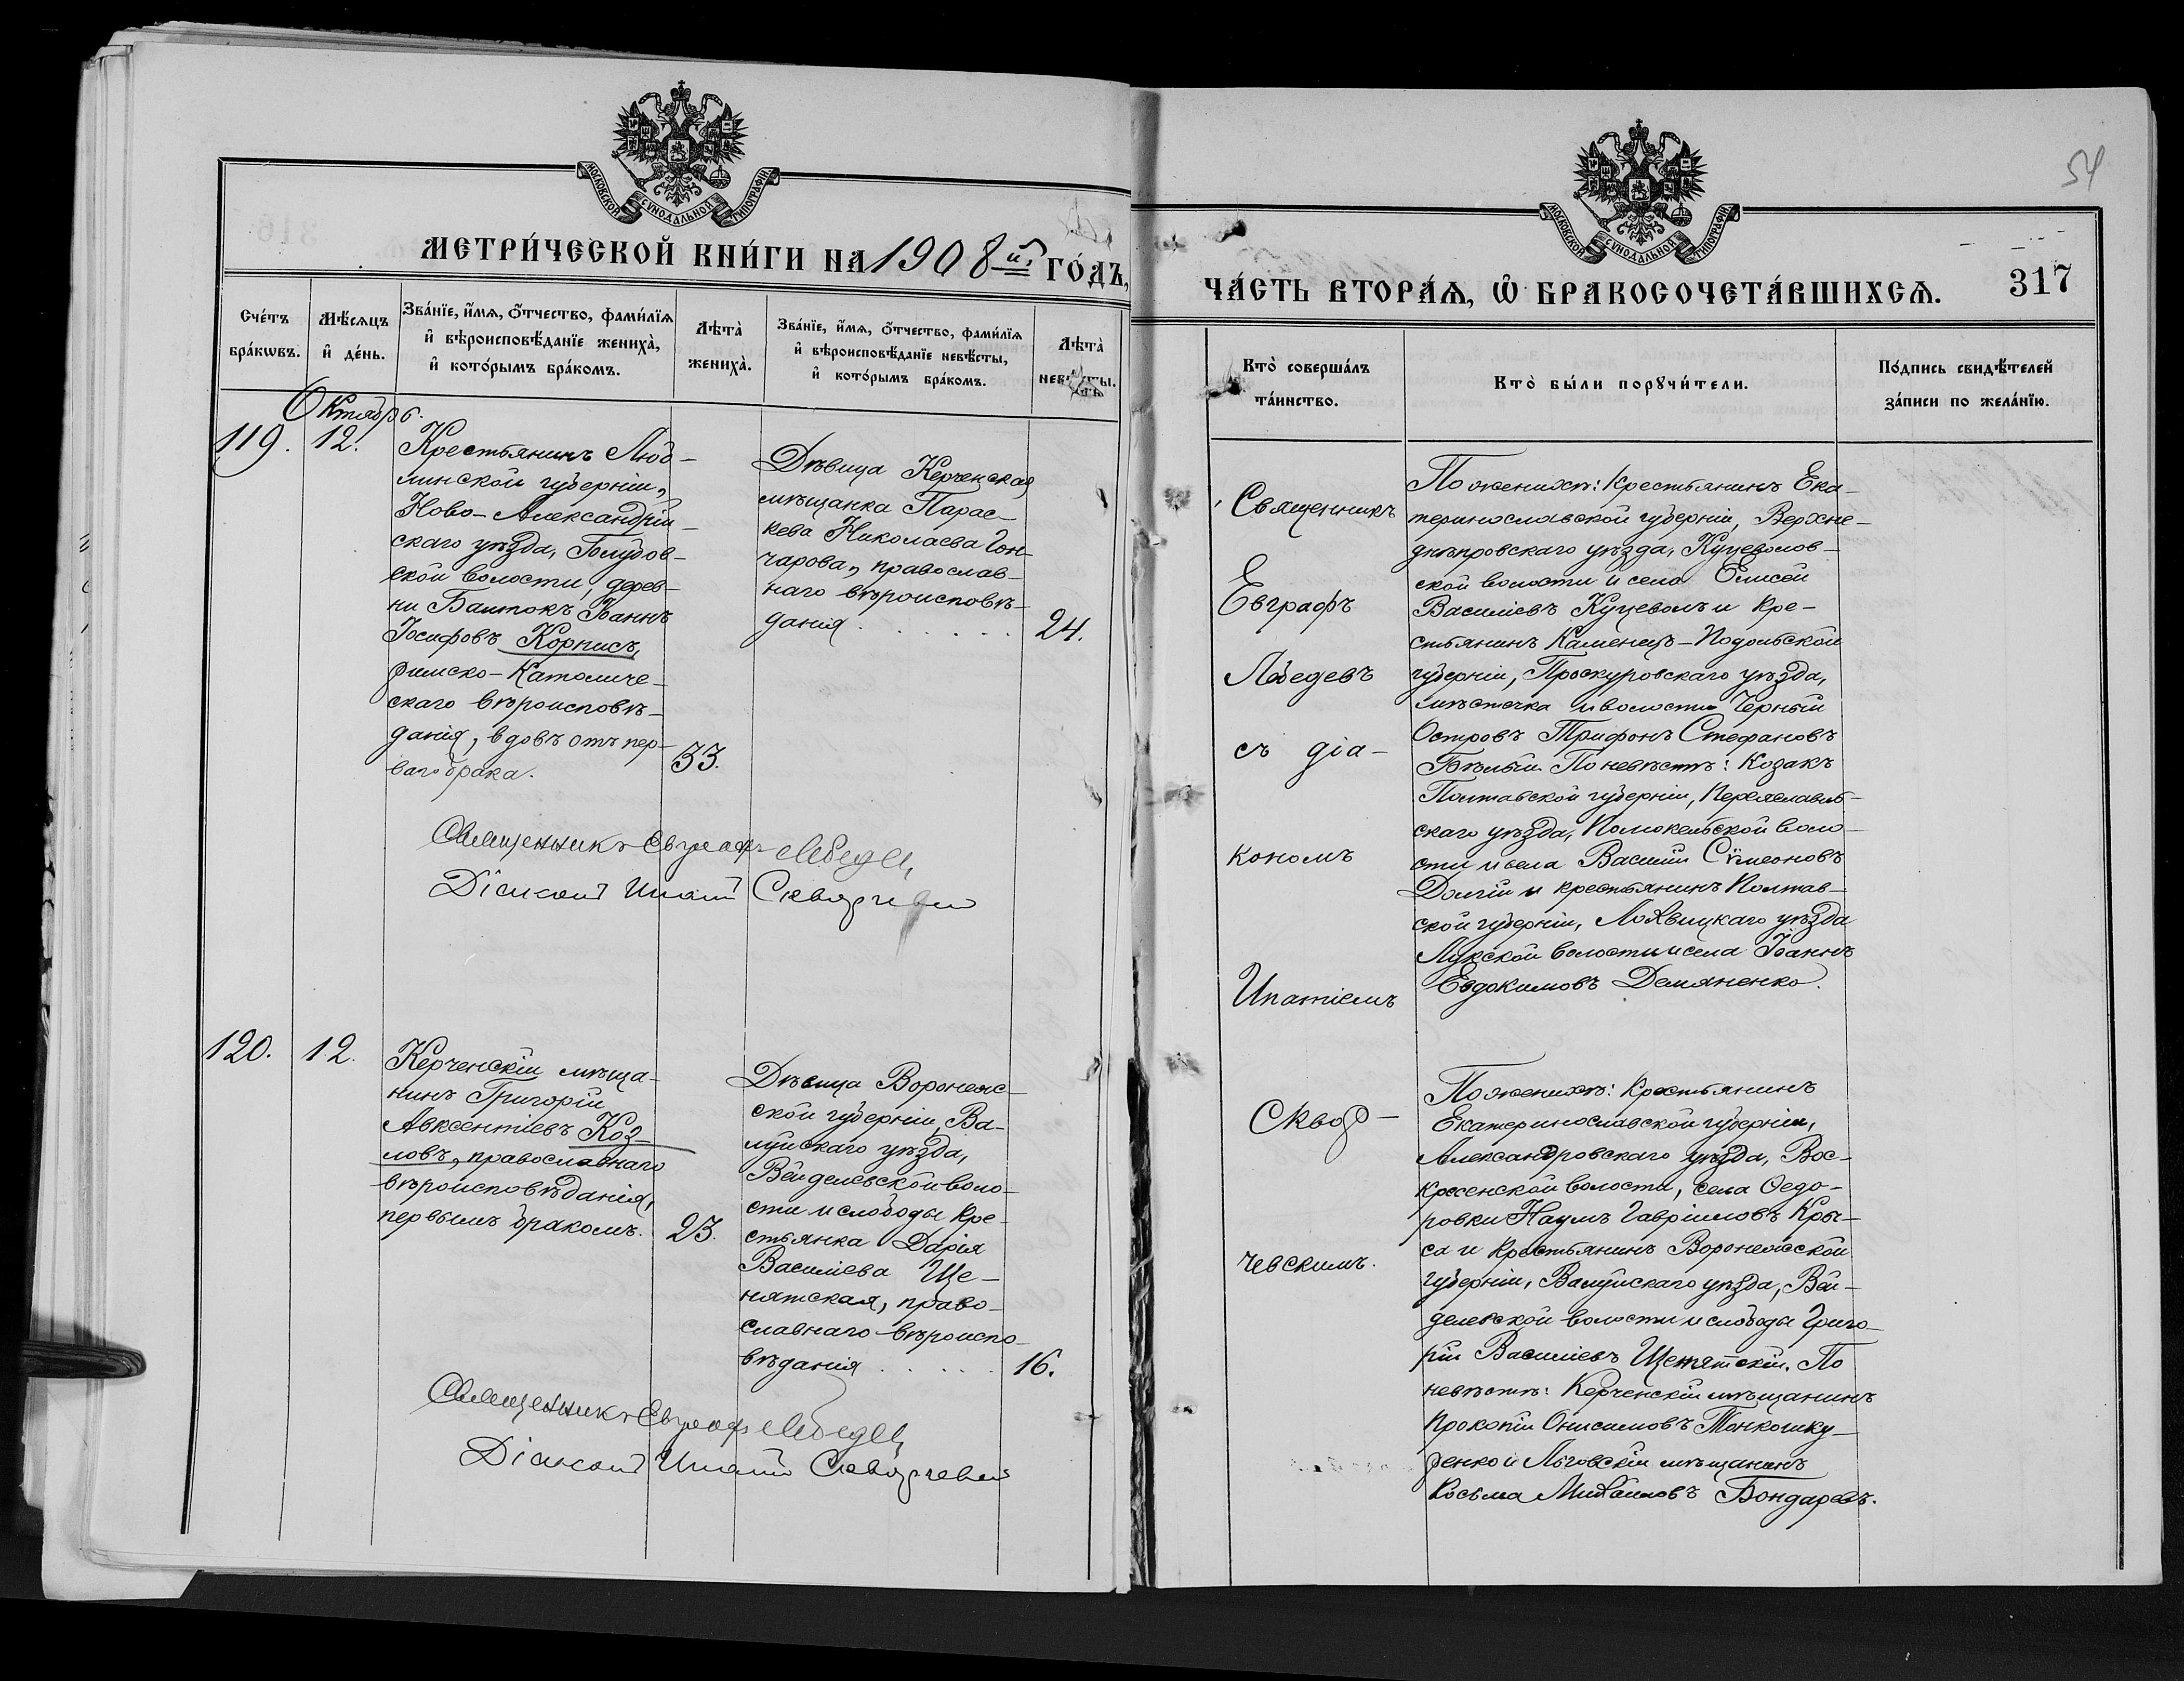 МОСКОВСКОЙ СѴНОДАЛЬНОЙ ТИПОГРАФІИ
МЕТРИ́ЧЕСКОЙ КНИ́ГИ НА 1908й ГО́ДЪ,
Сче́тъ бра́кѡвъ.
Мѣ́сяцъ и҆ де́нь.
Зва́нїе, и҆́мѧ, ѻ҆́тчество, фами́лїѧ
и҆ вѣроисповѣ́данїе жениха̀,
и҆ кото́рымъ бра́комъ.
Лѣта̀ жениха̀.
Зва́нїе, и҆́мѧ, ѻ҆́тчество, фами́лїѧ
и҆ вѣроисповѣ́данїе невѣ́сты,
и҆ кото́рымъ бра́комъ.
Лѣта̀ невѣ́сты.
Октябрь.
119. 12.
Крестьянинъ Люб-
линской губерніи,
Ново-Александрій-
скаго уѣзда, Голудов-
ской волости, дерев-
ни Іоаннъ
Іосифовъ Корписъ,
римско-Католиче-
скаго вѣроисповѣ-
данія, вдовъ отъ пер-
ваго брака.
33.
Дѣвица Керченская
мѣщанка Парас-
кева Николаева Гон-
чарова, православ-
наго вѣроисповѣ-
данія . . . . . .
24.
Священникъ Евграфъ Лебедев
Діаконъ Ипатій Скворчевскій
120. 12.
Керченскій мѣща-
нинъ Григорій
Авксентіевъ Коз-
ловъ, православнаго
вѣроисповѣданія,
первымъ бракомъ.
23.
Дѣвица Воронеж-
ской губерніи, Ва-
луйскаго уѣзда,
Вейделевской воло-
сти и слободы кре-
стьянка Дарія
Василіева Ще-
нятская, право-
славнаго вѣроиспо-
вѣданія . . . . .
16.
Священникъ Евграфъ Лебедев
Діаконъ Ипатій Скворчевскій
54
МОСКОВСКОЙ СѴНОДАЛЬНОЙ ТИПОГРАФІИ
ЧА́СТЬ ВТОРА́Ѧ, Ѡ҆ БРАКОСОЧЕТА́ВШИХСѦ.
317
Кто̀ соверша́лъ
та́инство.
Кто̀ бы́ли порꙋчи́тели.
По́дпись свидѣ́телей
за́писи по жела́нїю.
Священникъ
Евграфъ
Лебедевъ
съ діа-
кономъ
Ипатіемъ
Сквор-
чевскимъ.
По женихѣ: Крестьянинъ Ека-
теринославской губерніи, Верхне-
днѣпровскаго уѣзда, Куцеволов-
ской волости и села Елисей
Василіевъ Куцеволъ и кре-
стьянинъ Каменецъ-Подольской
губерніи, Проскуровскаго уѣзда,
мѣстечка и волости Черный
Островъ Трифонъ Стефановъ
Бѣлый. По невѣстѣ: Козакъ
Полтавской губерніи, Переяслав-
скаго уѣзда, Помокельской воло-
сти и села Василій Сѵмеоновъ
Долгій и крестьянинъ Полтав-
ской губерніи, Лохвицкаго уѣзда
Лукской волости и села Іоаннъ
Евдокимовъ Демяненко.
По женихѣ: Крестьянинъ
Екатеринославской губерніи,
Александровскаго уѣзда, Вос-
кресенской волости, села Ѳедо-
ровки Наумъ Гавріиловъ Кры-
са и крестьянинъ Воронежской
губерніи, Валуйскаго уѣзда, Вей-
делевской волости и слободы Григо-
рій Василіевъ Щенятскій. По
невѣстѣ: Керченскій мѣщанинъ
Прокопій Онисимовъ Тонкошку-
ренко и Льговскій мѣщанинъ
Косьма Михаиловъ Бондаревъ.